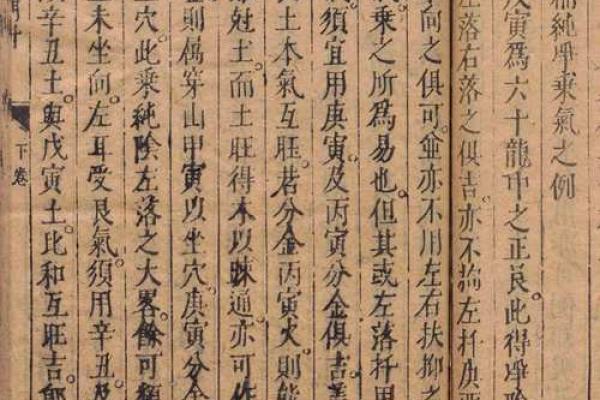 純淨乘氣之例
戊寅爲六十龍中之正艮。此得淨陰
左落右落之俱吉。亦不拘左扦庚
向之俱可。金亦不用左右扶抑之
氣乘之所爲易也。但其或左落扦用
須宜用庚寅。及丙寅分金俱吉。蓋
土木氣互旺。若分金丙寅火。則能
尅土。而土旺得木以疎通。亦可作
金則属穿山甲寅以坐穴。庚寅分金
穴。此乘純陰左落之大畧。餘可類
未坐向。左耳受艮氣。須用辛丑。及
辛丑土與戊寅土比和互旺吉。
下卷